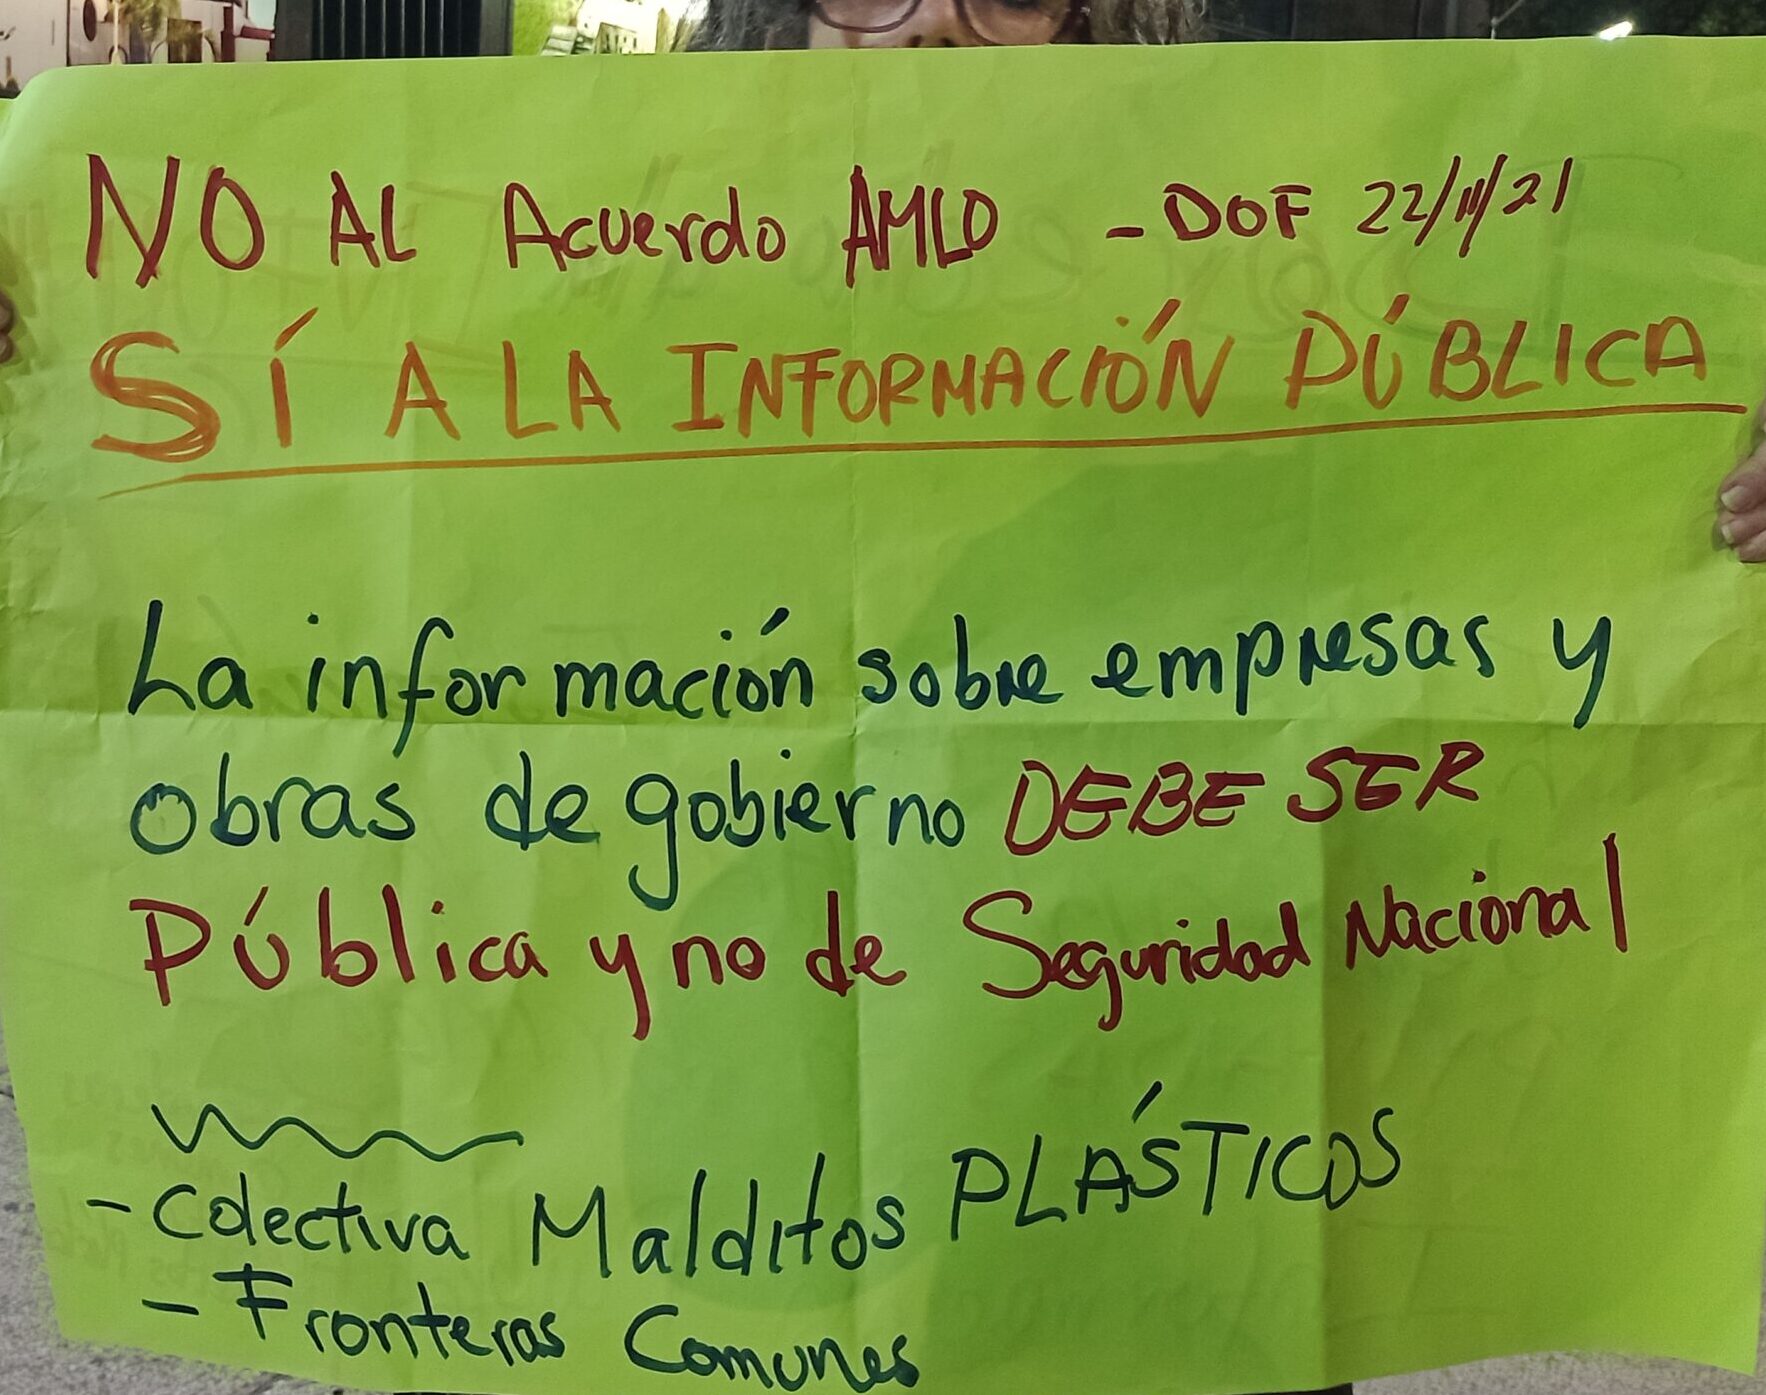 NO AL Acuerdo AMLO - DOF 22/11/21
SÍ A LA INFORMACIÓN PÚBLICA
La información sobre empresas y
obras de gobierno DEBE SER
Pública y no de Seguridad Nacional
- Colectiva Malditos PLÁSTICOS
- Fronteras Comunes